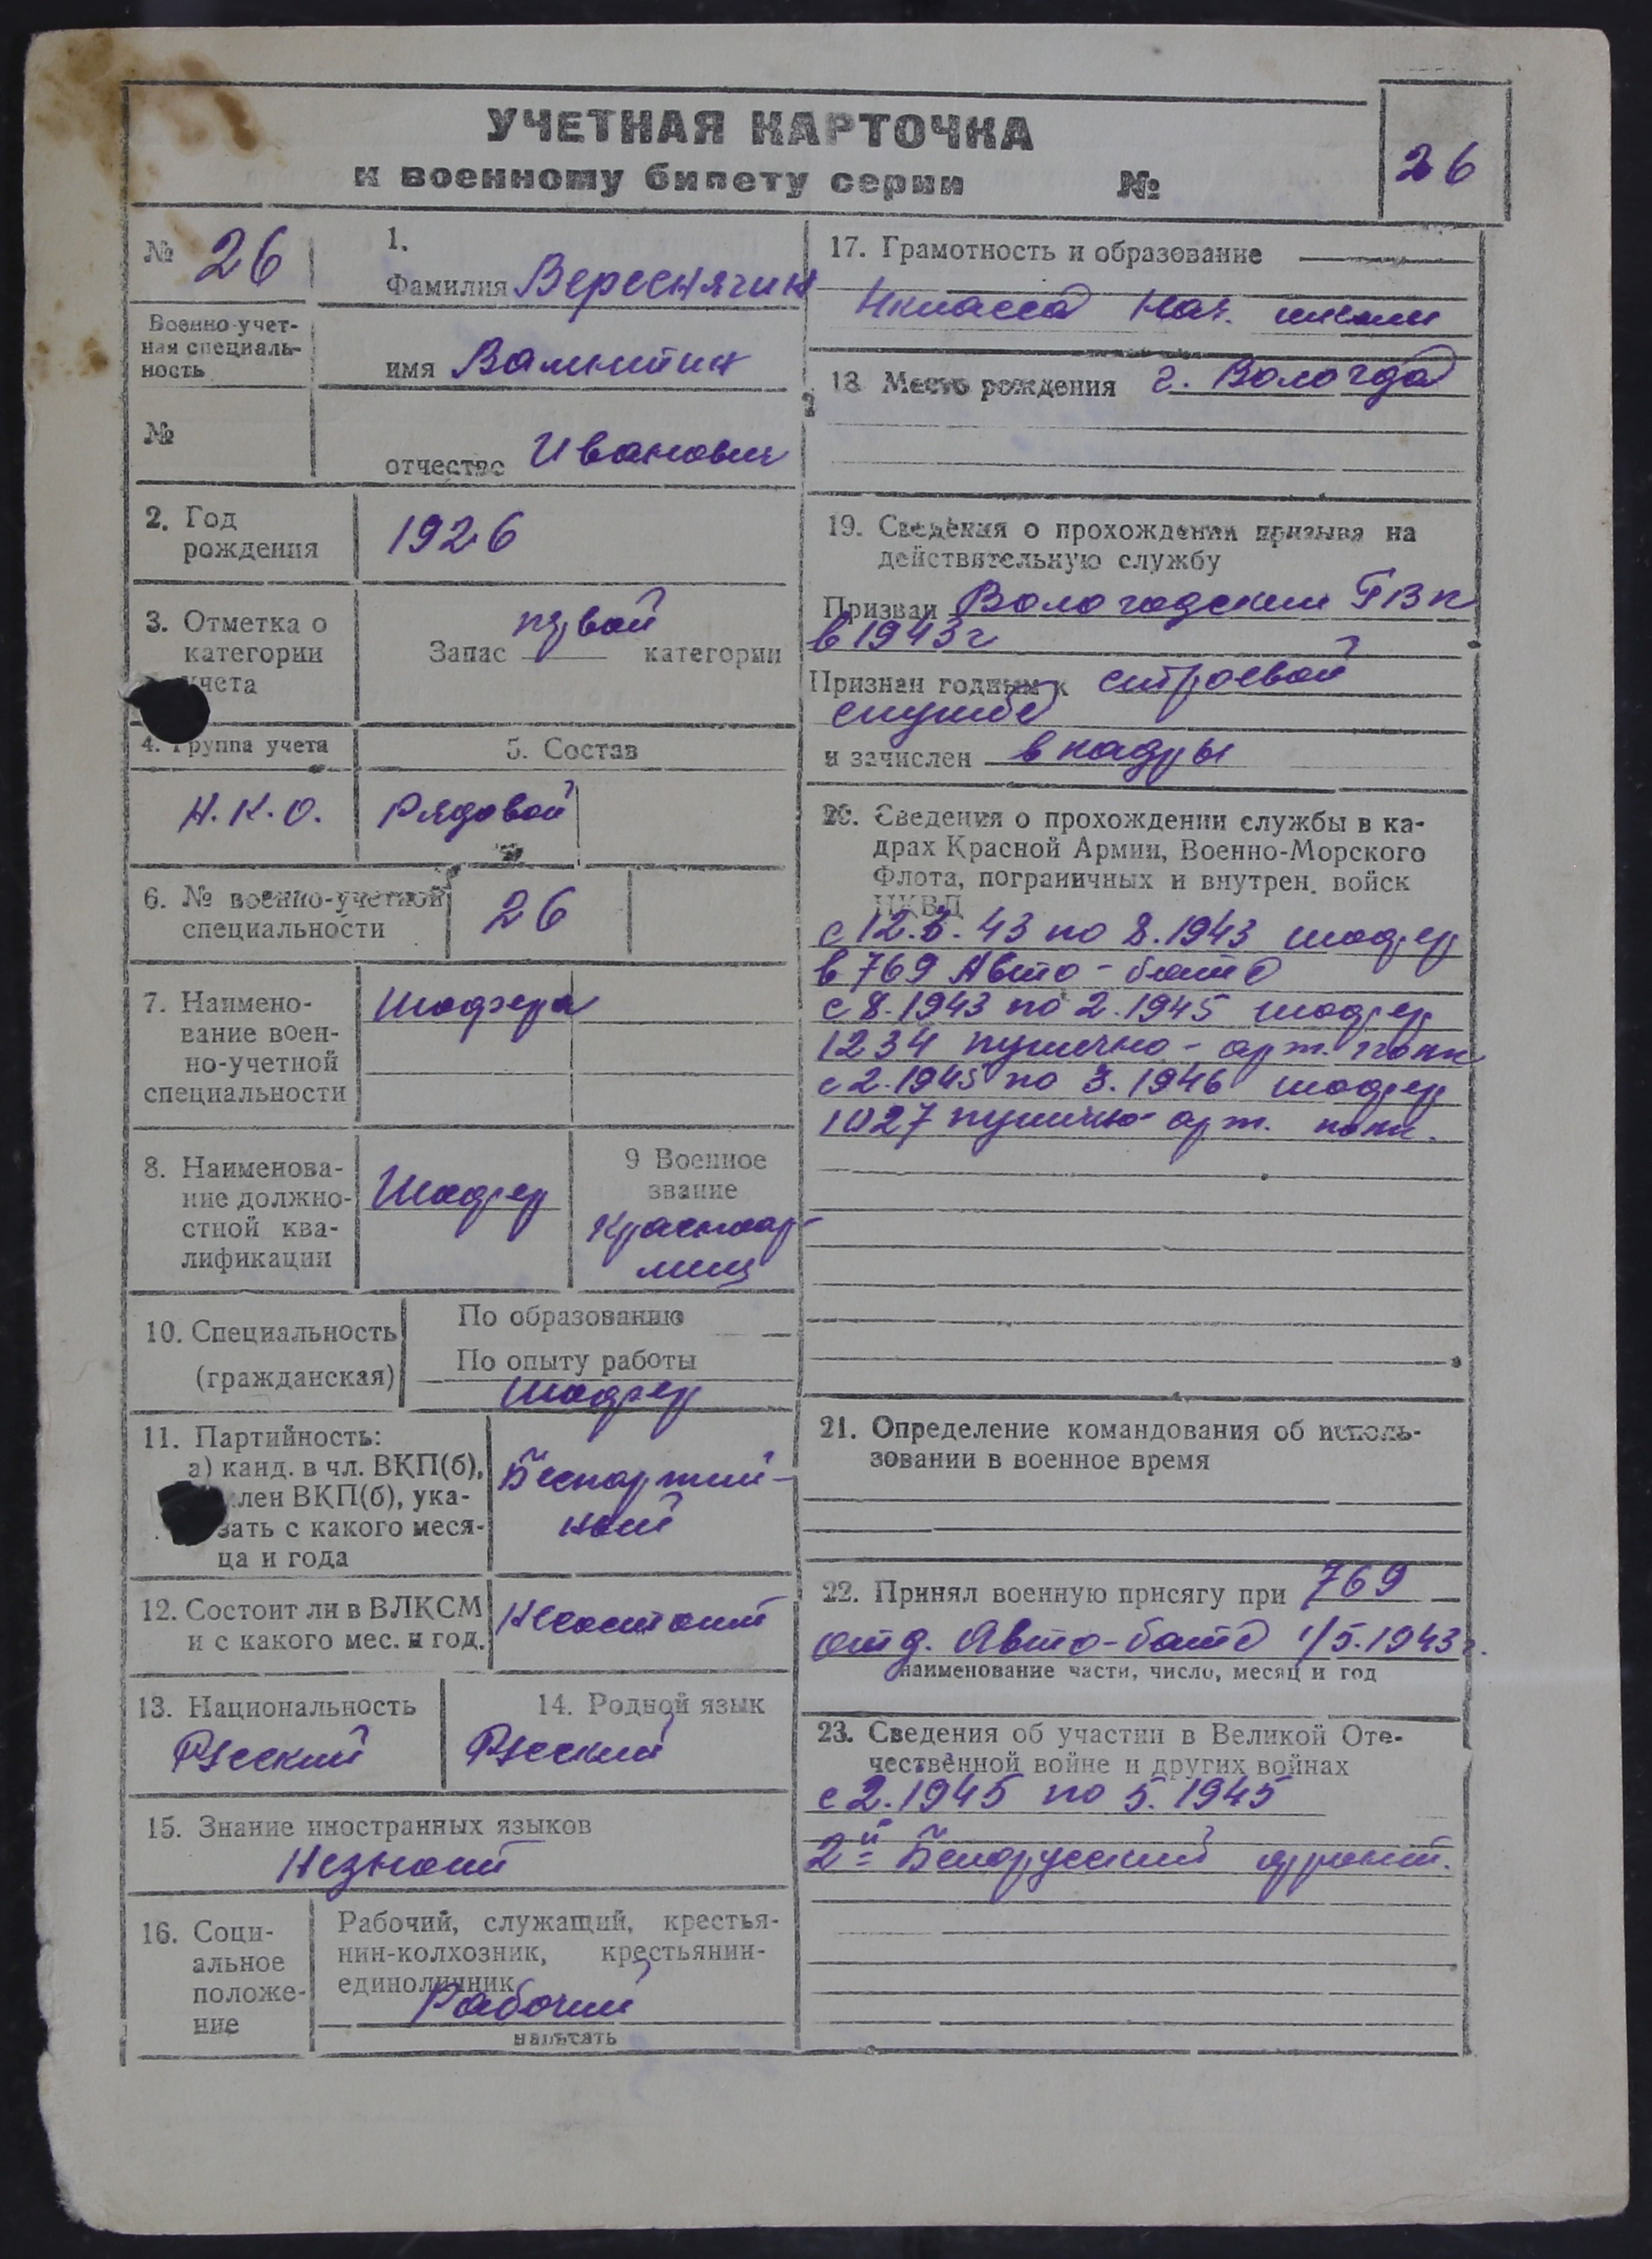 УЧЕТНАЯ КАРТОЧКА
к военному билету серии №
26
№ 26
Военно-учет-
ная специаль-
ность
№
1.
Фамилия Вереснягин
имя Валинтин
отчество Иванович
2. Год
рождения
1926
3. Отметка о
категории
учета
первой
Запас категории
4. Группа учета
Н.К.О.
5. Состав
Рядовой
6. № военно-учетной
специальности
26
7. Наимено-
вание воен-
но-учетной
специальности
Шофера
8. Наименова-
ние должно-
стной ква-
лификации
Шофер
9 Военное
звание
Красноар-
меец
10. Специальность
(гражданская)
По образованию
По опыту работы
Шофер
11. Партийность:
а) канд. в чл. ВКП(б),
член ВКП(б), ука-
зать с какого меся-
ца и года
Беспартий-
ный
12. Состоит ли в ВЛКСМ
и с какого мес. и год.
Несостоит
13. Национальность
Русский
14. Родной язык
Русский
15. Знание иностранных языков
Незнает
16. Соци-
альное
положе-
ние
Рабочий, служащий, крестья-
нин-колхозник, крестьянин-
единоличник
Рабочий
написать
17. Грамотность и образование
4класса Нач. школы
18 Место рождения г. Вологда
19. Сведения о прохождении призыва на
действительную службу
Призван Вологодским ГВК
в 1943г
Признан годным к строевой
службе
и зачислен в кадры
20. Сведения о прохождении службы в ка-
драх Красной Армии, Военно-Морского
Флота, пограничных и внутрен. войск
НКВД
с 12.3.43 по 8.1943 шофер
в 769 Авто-бате
с 8.1943 по 2.1945 шофер
1234 пушечно-арт. полк
с 2.1945 по 3.1946 шофер
1027 пушечно-арт. полк.
21. Определение командования об исполь-
зовании в военное время
22. Принял военную присягу при 769
отд. Авто-бате 1/5.1943г.
наименование части, число, месяц и год
23. Сведения об участии в Великой Оте-
чественной войне и других войнах
с 2.1945 по 5.1945
2й Белорусский фронт.